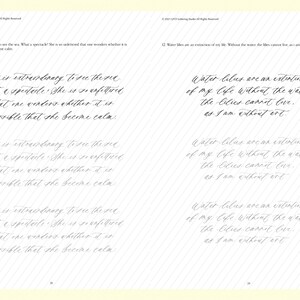 see the sea. What a spectacle! She is so undefined that one wonders whether it is
calm.
is extraordinary to see the sea
a spectacle! She is so undefined
that one wonders whether it is
possible that she become calm.
is extraordinary to see the sea
a spectacle! She is so undefined
that one wonders whether it is
possible that she become calm.
is extraordinary to see the sea
a spectacle! She is so undefined
that one wonders whether it is
possible that she become calm.
All Rights Reserved
12. Water lilies are an extension of my life. Without the water the lilies cannot live, as I am
Water lilies are an extension
of my life. Without the water
the lilies cannot live,
as I am without art.
Water lilies are an extension
of my life. Without the water
the lilies cannot live,
as I am without art.
Water lilies are an extension
of my life. Without the water
the lilies cannot live,
as I am without art.